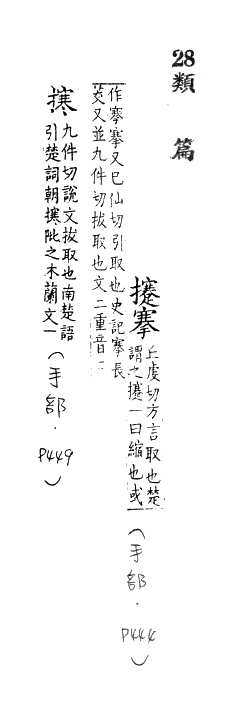 28類 篇
攓搴丘虔切方言取也楚
謂之攓一曰縮也或(手部.P444)
作搴搴又巳仙切引取也史記搴長
茭又並九件切拔取也文二重音二
㩃九件切說文拔取也南楚語
引楚詞朝㩃阰之木蘭文一(手部.P449)